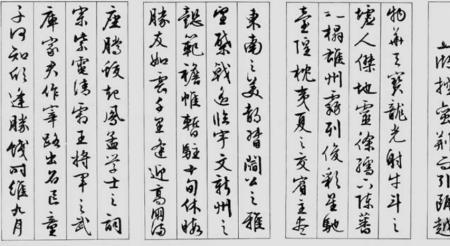 五湖控蠻荊而引甌越
物華天寶龍光射牛斗之
墟人傑地靈徐孺下陳蕃
之榻雄州霧列俊彩星馳
臺隍枕夷夏之交賓主盡
東南之美都督閻公之雅
望棨戟遙臨宇文新州之
懿範襜帷暫駐十旬休暇
勝友如雲千里逢迎高朋滿
座騰蛟起鳳孟學士之詞
宗紫電清霜王將軍之武
庫家君作宰路出名區童
子何知躬逢勝餞時維九月